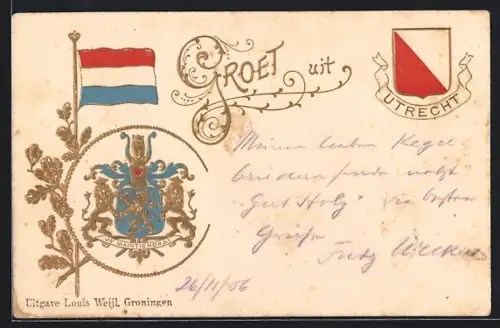 GROET uit
UTRECHT
Meinen lieben Kegel
brüdern sendet
"Gut Holz" die besten
Grüße
Fritz
JE MAINTIENDRAI
26/11/06
Uitgave Louis Weijl, Groningen